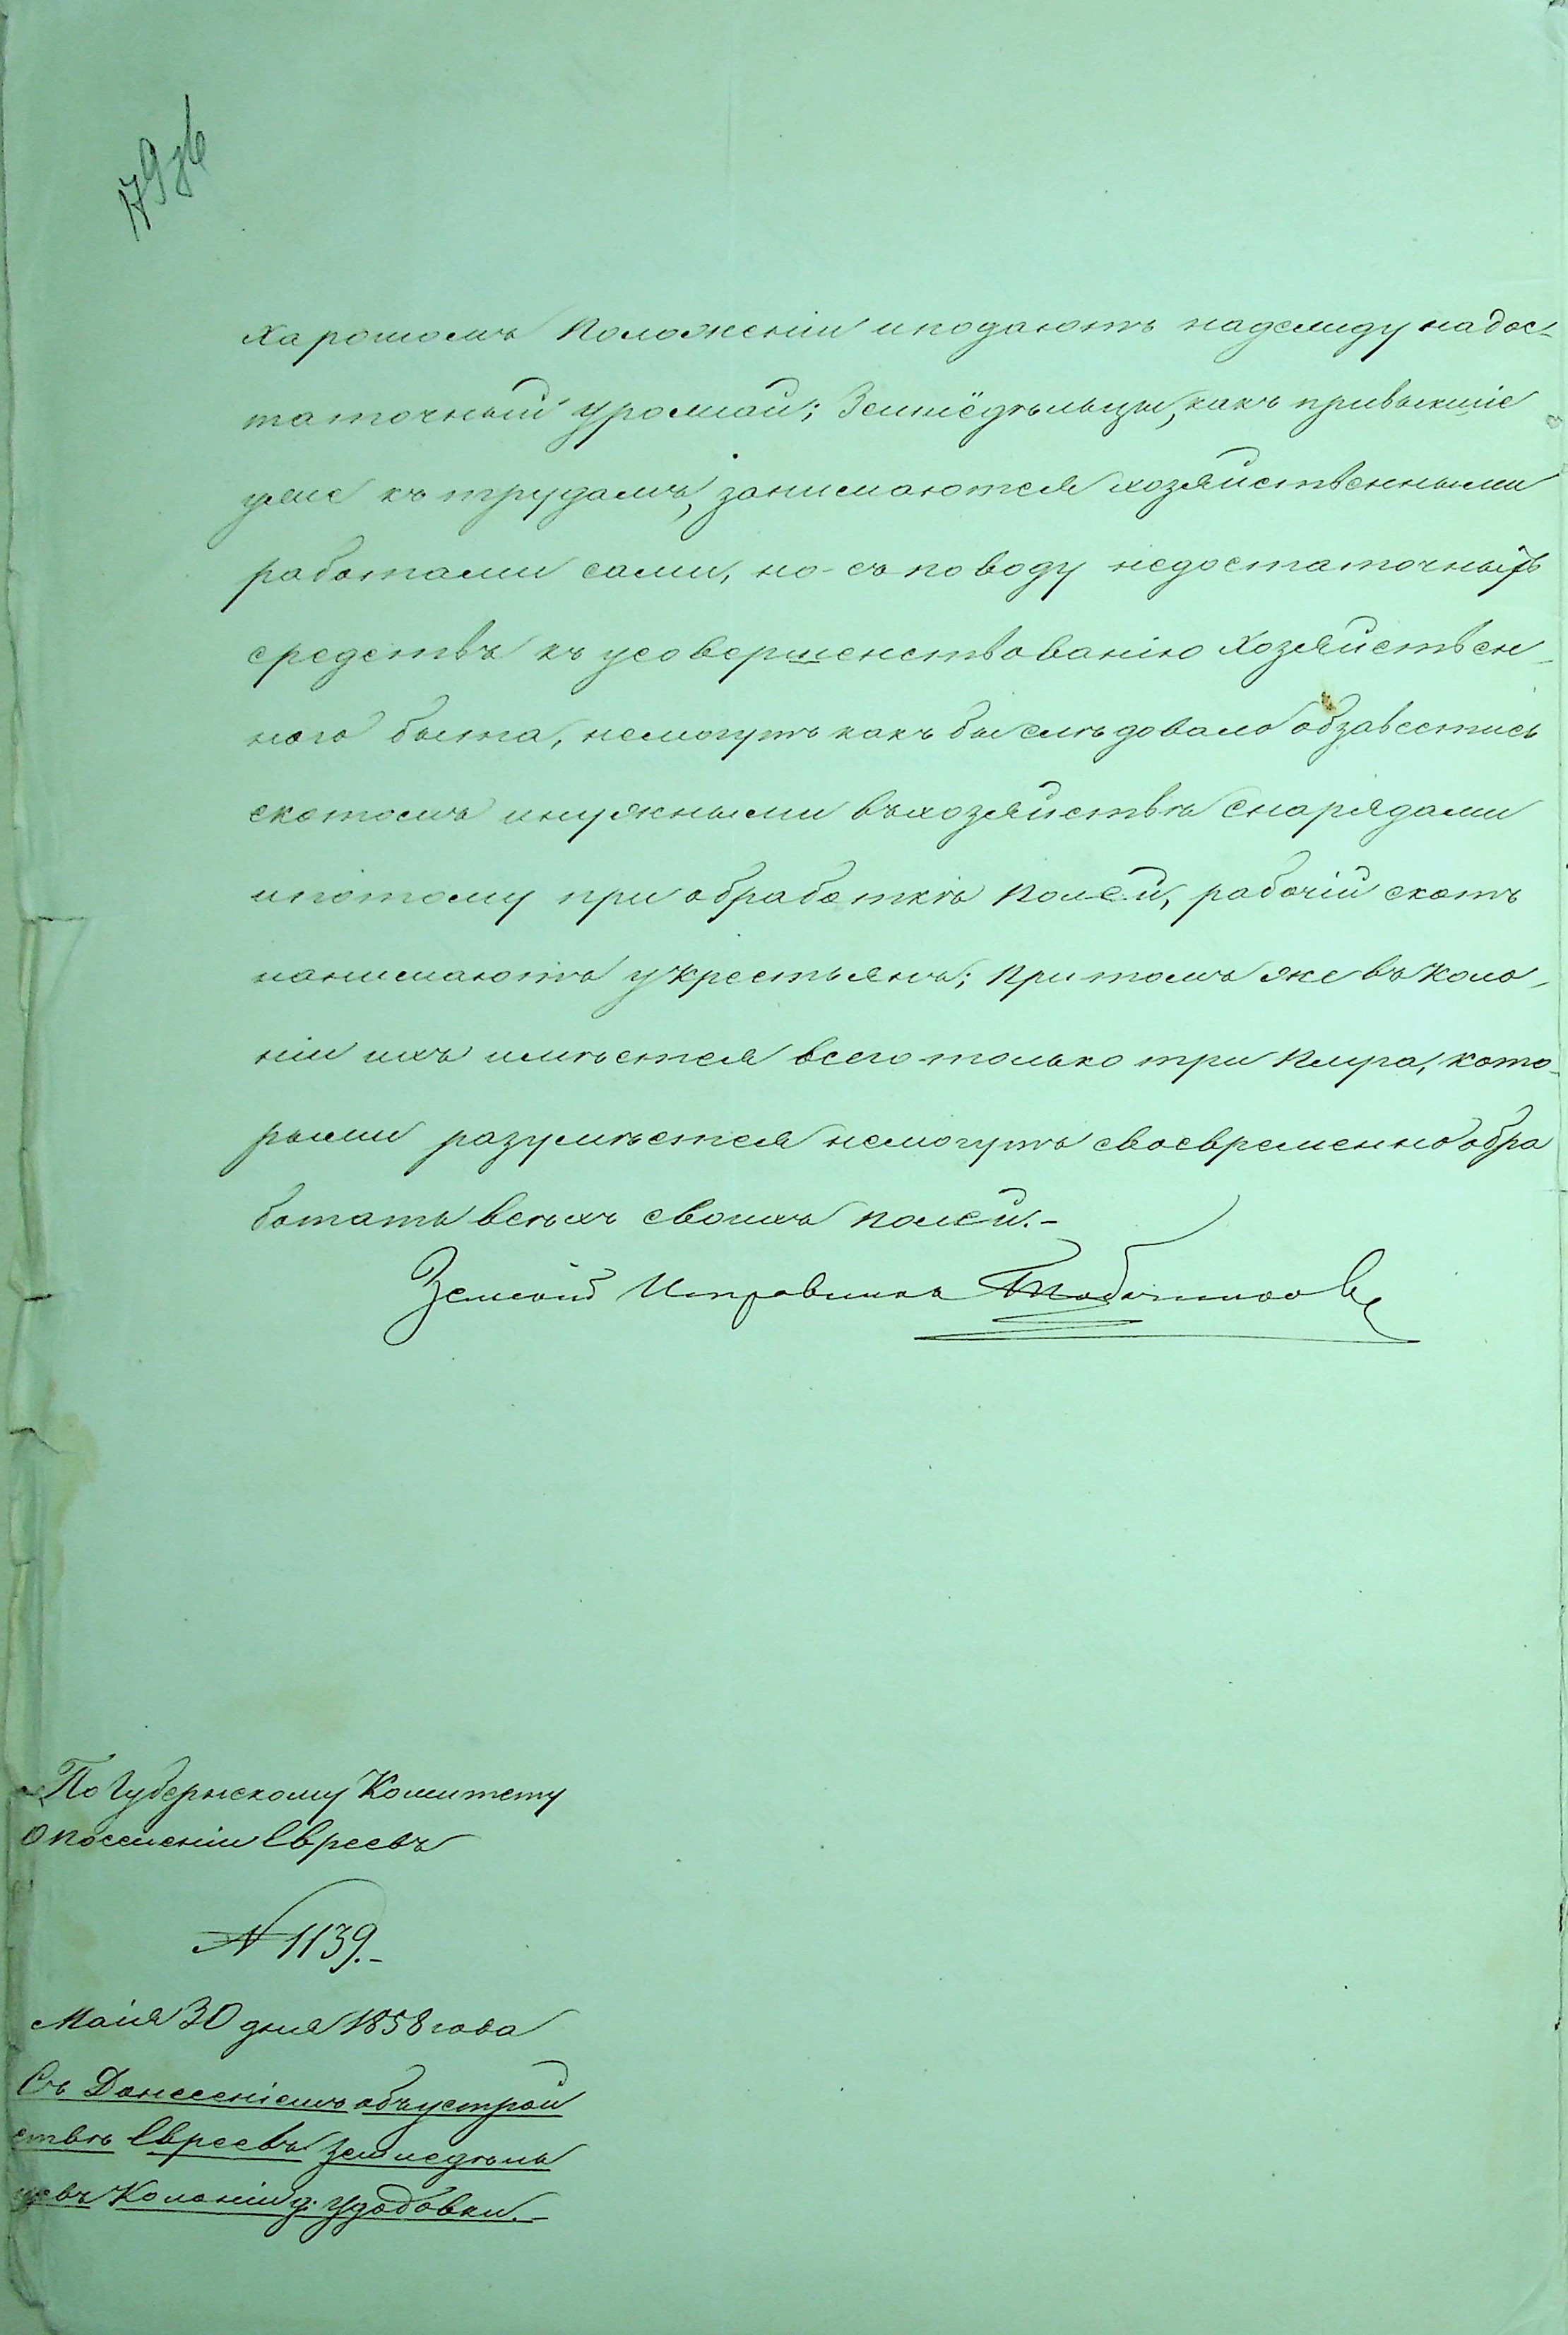 179 об
харошомъ положеніи и подаютъ надежду на дос-
таточный урожай; Землёдѣльцы, какъ привыкшіе
уже къ трудамъ, занимаются хозяйственными
работами сами, но съ поводу недостаточныхъ
средствъ къ усовершенствованію хозяйствен-
ного быта, немогутъ какъ бы слѣдовало обзавестись
скотомъ и нужными въ хозяйствѣ снарядами
и потому при обработкѣ полей, рабочій скотъ
нанимаютъ у крестьянъ; При томъ же въ коло-
ніи ихъ имѣется всего только три плуга, кото-
рыми разумѣется немогутъ своевременно обра
ботать всѣхъ своихъ полей.-
Земскій Исправникъ
По Губернскому Комитету
о поселеніи Евреевъ
№ 1139.-
Маія 30 дня 1858 года
Съ Донесеніемъ объ устрой
ствѣ Евреевъ земледѣль
цевъ Колоніи д. Удобовки.-